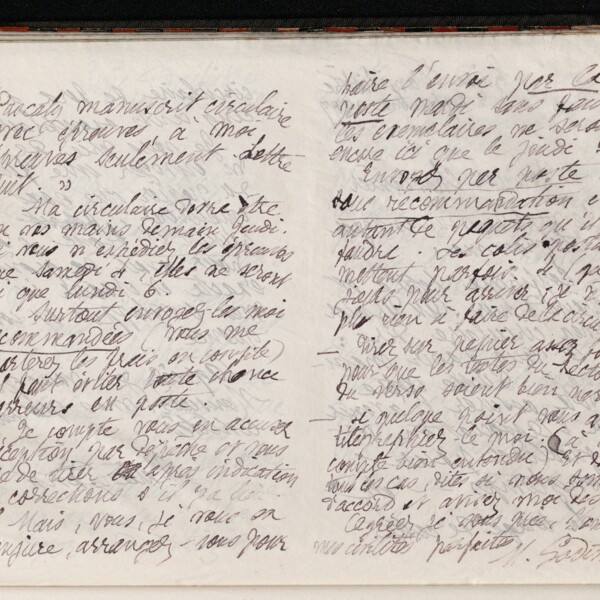 manuscrit circulaire
avec épreuves, à moi
épreuves seulement. Lettre
suit. »
Ma circulaire devra être
en vos mains demain jeudi.
Si vous n'expédiez les épreuves
que samedi 4 elles ne seront
ici que lundi 6.
Surtout envoyez-les moi
recommandées (vous me
porterez les frais en compte)
il faut éviter toute chance
d'erreurs en poste.
Je compte vous en accuser
réception par dépêche et vous
de tirer après indication
corrections s'il y a lieu.
Mais, vous, je vous en
conjure, arrangez-vous pour
faire l'envoi par la
poste mardi sans
les exemplaires, ne seront
encore ici que le jeudi
Envoyez par poste
sous recommandation
autant de paquets qu'il
faudra. Les colis
mettent parfois
jours pour arriver
plus rien à faire de la
— Tirer sur papier assez
pour que les textes du recto
du verso soient bien
— si quelque point vous
télégraphiez-le moi. (à
compte bien entendu) Et
tous les cas, dites si nous
d'accord et avisez moi
Agréez je vous prie,
mes civilités parfaites